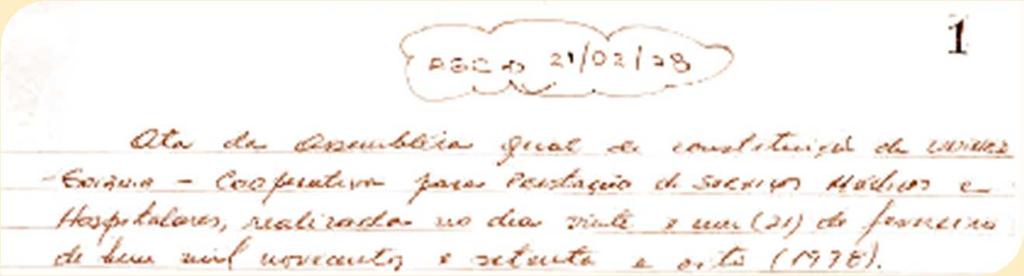 1
AGC 21/02/78
Ata da Assembléia Geral de constituição da UNIMED
- Goiânia - Cooperativa para Prestação de Serviços Médicos e
Hospitalares, realizada no dia vinte e um (21) de fevereiro
de hum mil novecentos e setenta e oito (1978).